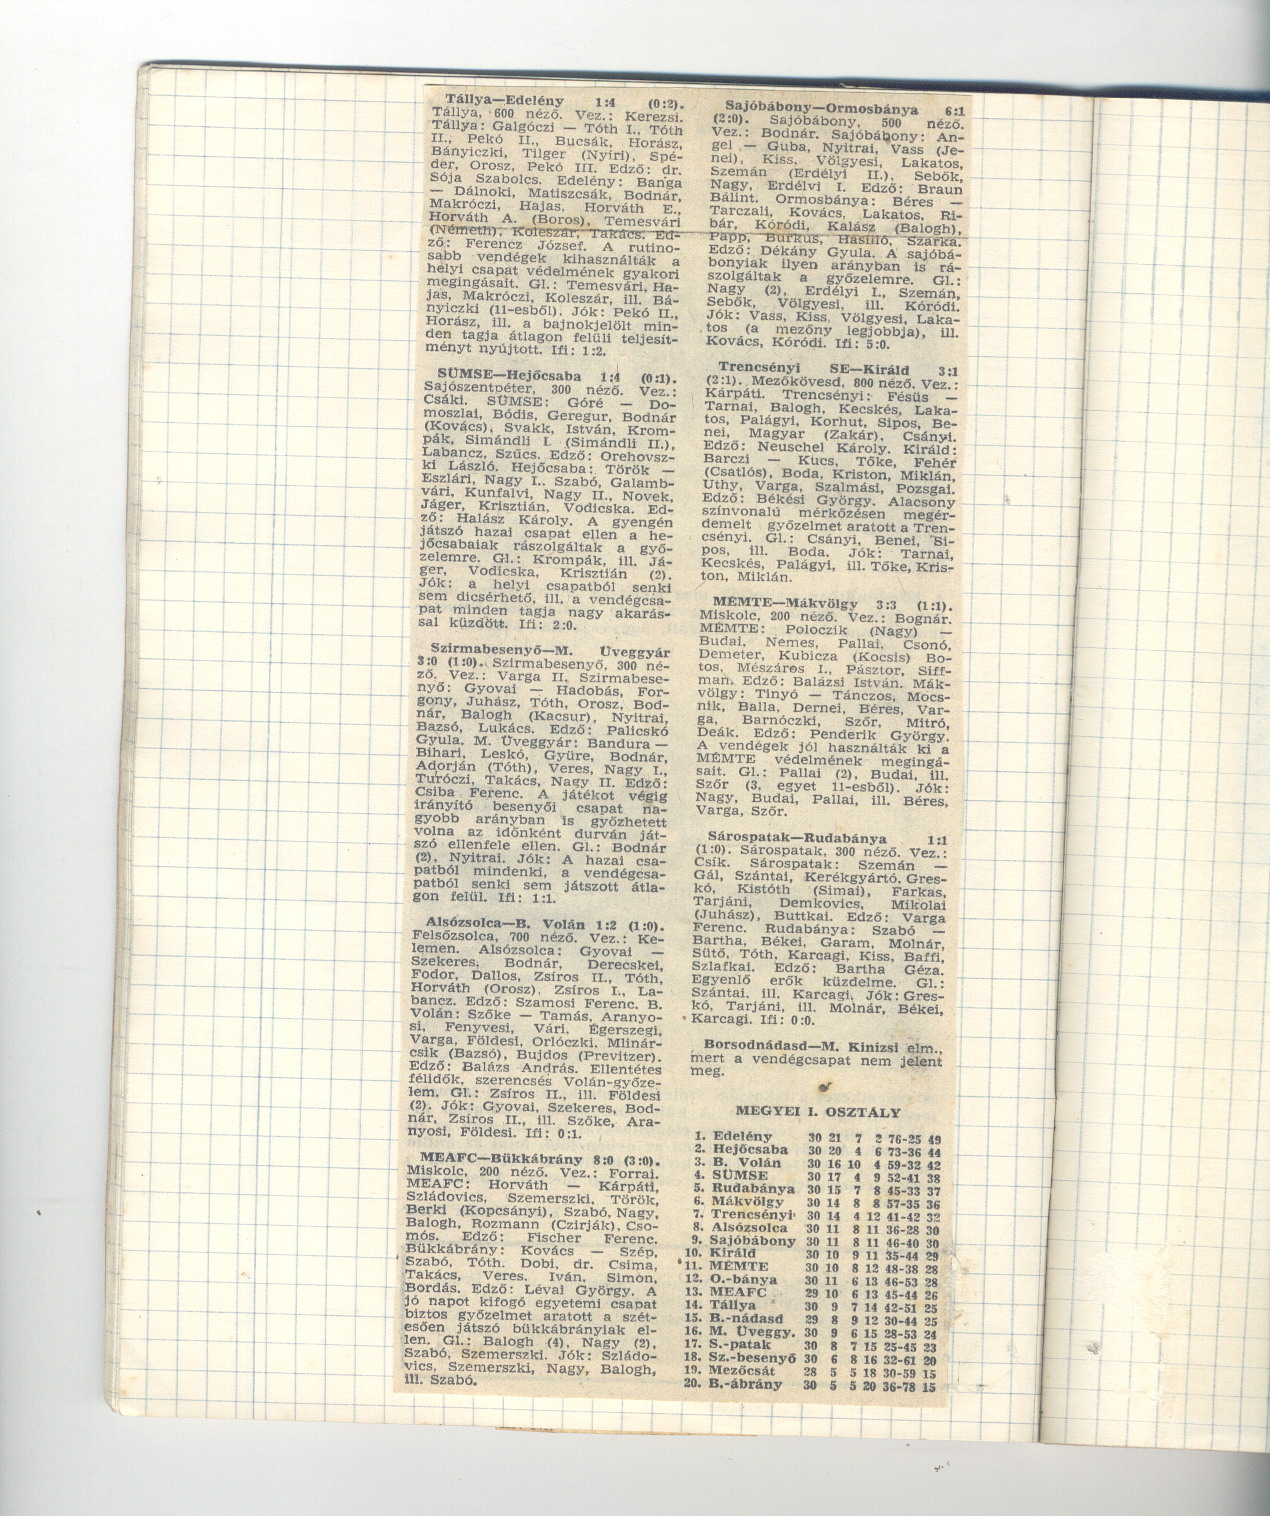 Tállya—Edelény 1:4 (0:2).
Tállya, 600 néző. Vez.: Kerezsi.
Tállya: Galgóczi — Tóth I., Tóth
II., Pekó II., Bucsák, Horász,
Bányiczki, Tilger (Nyíri), Spé-
der, Orosz, Pekó III. Edző: dr.
Sója Szabolcs. Edelény: Banga
— Dálnoki, Matiszcsák, Bodnár,
Makróczi, Hajas, Horváth E.,
Horváth A. (Boros), Temesvári
(Németh), Koleszár, Takács. Ed-
ző: Ferencz József. A rutino-
sabb vendégek kihasználták a
helyi csapat védelmének gyakori
megingásait. Gl.: Temesvári, Ha-
jas, Makróczi, Koleszár, ill. Bá-
nyiczki (11-esből). Jók: Pekó II.,
Horász, ill. a bajnokjelölt min-
den tagja átlagon felüli teljesít-
ményt nyújtott. Ifi: 1:2.
SÜMSE—Hejőcsaba 1:4 (0:1).
Sajószentpéter, 300 néző. Vez.:
Csáki. SÜMSE: Góré — Do-
moszlai, Bódis, Geregur, Bodnár
(Kovács), Svakk, István, Krom-
pák, Simándli I. (Simándli II.),
Labancz, Szűcs. Edző: Orehovsz-
ki László. Hejőcsaba: Török —
Eszlári, Nagy I., Szabó, Galamb-
vári, Kunfalvi, Nagy II., Novek,
Jáger, Krisztián, Vodicska. Ed-
ző: Halász Károly. A gyengén
játszó hazai csapat ellen a he-
jőcsabaiak rászolgáltak a győ-
zelemre. Gl.: Krompák, ill. Já-
ger, Vodicska, Krisztián (2).
Jók: a helyi csapatból senki
sem dicsérhető, ill. a vendégcsa-
pat minden tagja nagy akarás-
sal küzdött. Ifi: 2:0.
Szirmabesenyő—M. Üveggyár
3:0 (1:0). Szirmabesenyő, 300 né-
ző. Vez.: Varga II. Szirmabese-
nyő: Gyovai — Hadobás, For-
gony, Juhász, Tóth, Orosz, Bod-
nár, Balogh (Kacsur), Nyitrai,
Bazsó, Lukács. Edző: Palicskó
Gyula. M. Üveggyár: Bandura —
Bihari, Leskó, Gyüre, Bodnár,
Adorján (Tóth), Veres, Nagy I.,
Turóczi, Takács, Nagy II. Edző:
Csiba Ferenc. A játékot végig
irányító besenyői csapat na-
gyobb arányban is győzhetett
volna az időnként durván ját-
szó ellenfele ellen. Gl.: Bodnár
(2), Nyitrai. Jók: A hazai csa-
patból mindenki, a vendégcsa-
patból senki sem játszott átla-
gon felül. Ifi: 1:1.
Alsózsolca—B. Volán 1:2 (1:0).
Felsőzsolca, 700 néző. Vez.: Ke-
lemen. Alsózsolca: Gyovai —
Szekeres, Bodnár, Derecskei,
Fodor, Dallos, Zsíros II., Tóth,
Horváth (Orosz), Zsíros I., La-
bancz. Edző: Szamosi Ferenc. B.
Volán: Szőke — Tamás, Aranyo-
si, Fenyvesi, Vári, Égerszegi,
Varga, Földesi, Orlóczki, Mlinár-
csik (Bazsó), Bujdos (Previtzer).
Edző: Balázs András. Ellentétes
félidők, szerencsés Volán-győze-
lem. Gl.: Zsíros II., ill. Földesi
(2). Jók: Gyovai, Szekeres, Bod-
nár, Zsíros II., ill. Szőke, Ara-
nyosi, Földesi. Ifi: 0:1.
MEAFC—Bükkábrány 8:0 (3:0).
Miskolc, 200 néző. Vez.: Forrai.
MEAFC: Horváth — Kárpáti,
Szládovics, Szemerszki, Török,
Berki (Kopcsányi), Szabó, Nagy,
Balogh, Rozmann (Czirják), Cso-
mós. Edző: Fischer Ferenc.
Bükkábrány: Kovács — Szép,
Szabó, Tóth, Dobi, dr. Csima,
Takács, Veres, Iván, Simon,
Bordás. Edző: Lévai György. A
jó napot kifogó egyetemi csapat
biztos győzelmet aratott a szét-
esően játszó bükkábrányiak el-
len. Gl.: Balogh (4), Nagy (2),
Szabó, Szemerszki. Jók: Szládo-
vics, Szemerszki, Nagy, Balogh,
ill. Szabó.
Sajóbábony—Ormosbánya 6:1
(2:0). Sajóbábony, 500 néző.
Vez.: Bodnár. Sajóbábony: An-
gel — Guba, Nyitrai, Vass (Je-
nei), Kiss, Völgyesi, Lakatos,
Szemán (Erdélyi II.), Sebők,
Nagy, Erdélvi I. Edző: Braun
Bálint. Ormosbánya: Béres —
Tarczali, Kovács, Lakatos, Ri-
bár, Kóródi, Kalász (Balogh),
Papp, Burkus, Hasilló, Szarka.
Edző: Dékány Gyula. A sajóbá-
bonyiak ilyen arányban is rá-
szolgáltak a győzelemre. Gl.:
Nagy (2), Erdélyi I., Szemán,
Sebők, Völgyesi, ill. Kóródi.
Jók: Vass, Kiss, Völgyesi, Laka-
tos (a mezőny legjobbja), ill.
Kovács, Kóródi. Ifi: 5:0.
Trencsényi SE—Királd 3:1
(2:1). Mezőkövesd, 800 néző. Vez.:
Kárpáti. Trencsényi: Fésüs —
Tarnai, Balogh, Kecskés, Laka-
tos, Palágyi, Korhut, Sipos, Be-
nei, Magyar (Zakár), Csányi.
Edző: Neuschel Károly. Királd:
Barczi — Kucs, Tőke, Fehér
(Csatlós), Boda, Kriston, Miklán,
Uthy, Varga, Szalmási, Pozsgai.
Edző: Békési György. Alacsony
színvonalú mérkőzésen megér-
demelt győzelmet aratott a Tren-
csényi. Gl.: Csányi, Benei, Si-
pos, ill. Boda. Jók: Tarnai,
Kecskés, Palágyi, ill. Tőke, Kris-
ton, Miklán.
MÉMTE—Mákvölgy 3:3 (1:1).
Miskolc, 200 néző. Vez.: Bognár.
MÉMTE: Poloczik (Nagy) —
Budai, Nemes, Pallai, Csonó,
Demeter, Kubicza (Kocsis) Bo-
tos, Mészáros I., Pásztor, Siff-
man. Edző: Balázsi István. Mák-
völgy: Tinyó — Tánczos, Mocs-
nik, Balla, Dernei, Béres, Var-
ga, Barnóczki, Szőr, Mitró,
Deák. Edző: Penderik György.
A vendégek jól használták ki a
MÉMTE védelmének megingá-
sait. Gl.: Pallai (2), Budai, ill.
Szőr (3, egyet 11-esből). Jók:
Nagy, Budai, Pallai, ill. Béres,
Varga, Szőr.
Sárospatak—Rudabánya 1:1
(1:0). Sárospatak, 300 néző. Vez.:
Csík. Sárospatak: Szemán —
Gál, Szántai, Kerékgyártó, Gres-
kó, Kistóth (Simai), Farkas,
Tarjáni, Demkovics, Mikolai
(Juhász), Buttkai. Edző: Varga
Ferenc. Rudabánya: Szabó —
Bartha, Békei, Garam, Molnár,
Sütő, Tóth, Karcagi, Kiss, Baffi,
Szlafkai. Edző: Bartha Géza.
Egyenlő erők küzdelme. Gl.:
Szántai, ill. Karcagi. Jók: Gres-
kó, Tarjáni, ill. Molnár, Békei,
Karcagi. Ifi: 0:0.
Borsodnádasd—M. Kinizsi elm.,
mert a vendégcsapat nem jelent
meg.
MEGYEI I. OSZTÁLY
1. Edelény 30 21 7 2 76-25 49
2. Hejőcsaba 30 20 4 6 73-36 44
3. B. Volán 30 16 10 4 59-32 42
4. SÜMSE 30 17 4 9 52-41 38
5. Rudabánya 30 15 7 8 45-33 37
6. Mákvölgy 30 14 8 8 57-35 36
7. Trencsényi 30 14 4 12 41-42 32
8. Alsózsolca 30 11 8 11 36-28 30
9. Sajóbábony 30 11 8 11 46-40 30
10. Királd 30 10 9 11 35-44 29
11. MÉMTE 30 10 8 12 48-38 28
12. O.-bánya 30 11 6 13 46-53 28
13. MEAFC 29 10 6 13 45-44 26
14. Tállya 30 9 7 14 42-51 25
15. B.-nádasd 29 8 9 12 30-44 25
16. M. Üveggy. 30 9 6 15 28-53 24
17. S.-patak 30 8 7 15 25-45 23
18. Sz.-besenyő 30 6 8 16 32-61 20
19. Mezőcsát 28 5 5 18 30-59 15
20. B.-ábrány 30 5 5 20 36-78 15